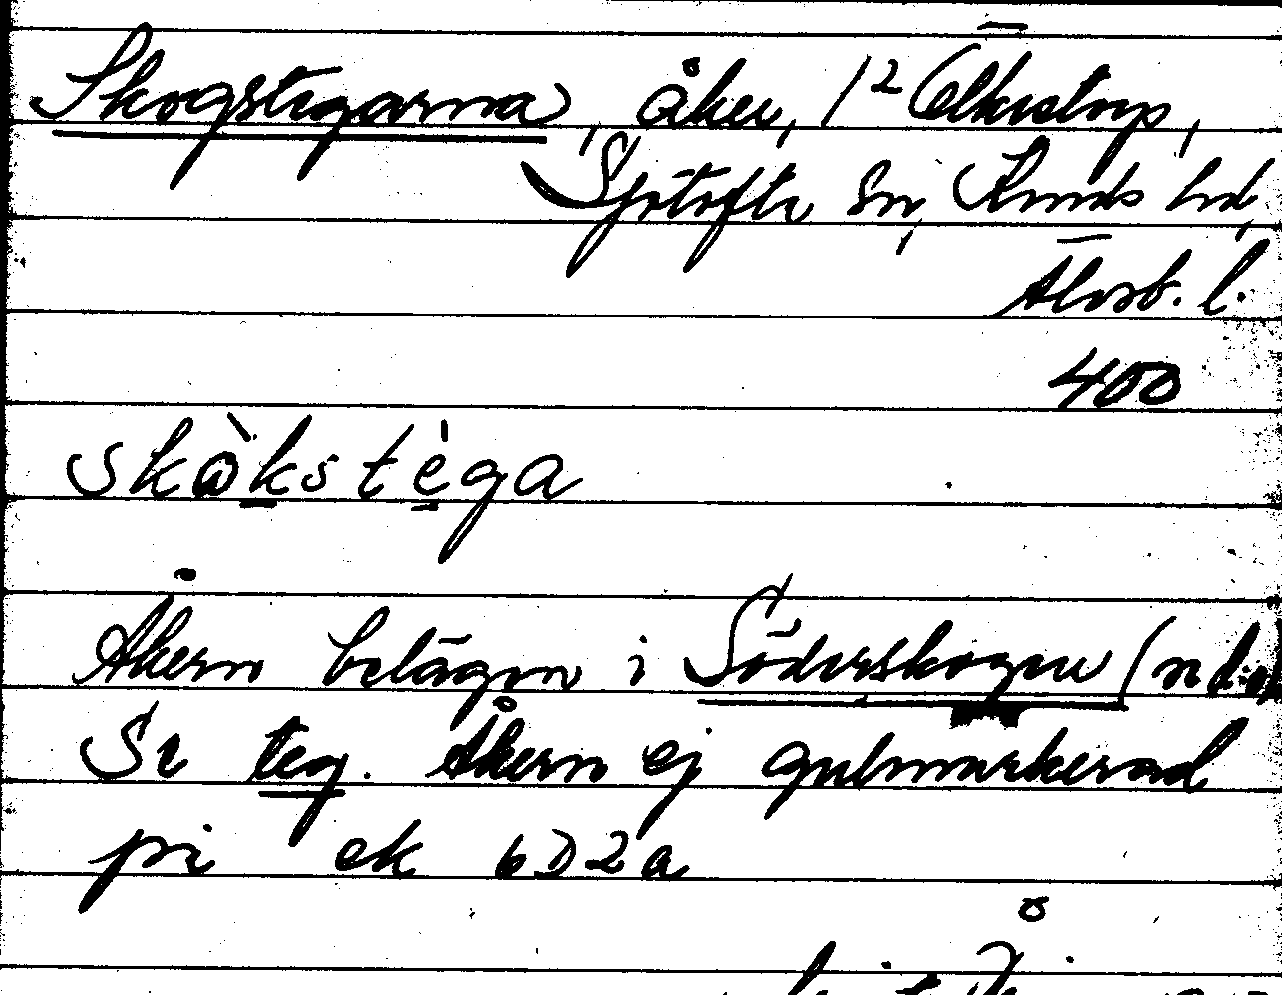 Skogstegarna, åker, 1² Ölkistorp,
Sjötofta sn, Kinds hd,
Älvsb. l.
400
skòkstèga
Åkern belägen i Söderskogen (n d.o)
Se teg. Åkern ej gulmarkerad
på ek 6D2a